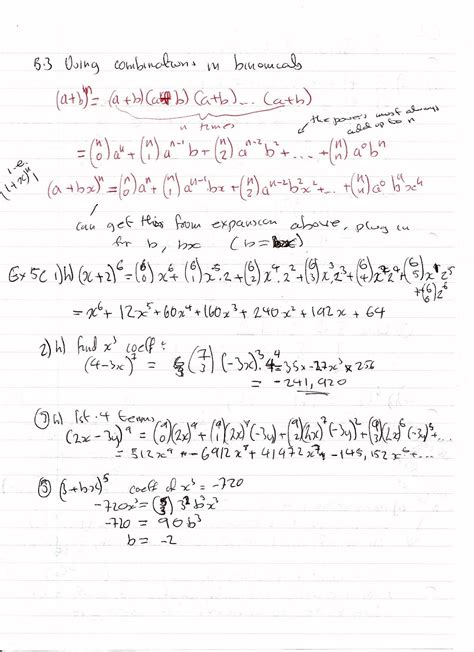 5.3 Using combinations in binomials
(a+b)ⁿ = (a+b)(a+b)(a+b)... (a+b)
n times
the powers must always add up to n
= (n 0)aⁿ + (n 1)aⁿ⁻¹b + (n 2)aⁿ⁻²b² + ... + (n n)a⁰bⁿ
i.e. (1+x)ⁿ
(a+bx)ⁿ = (n 0)aⁿ + (n 1)aⁿ⁻¹bx + (n 2)aⁿ⁻²b²x² + ... + (n n)a⁰bⁿxⁿ
can get this from expansion above, plug in
for b, bx (b = bx)
Ex 5C 1)h) (x+2)⁶ = (6 0)x⁶ + (6 1)x⁵.2 + (6 2)x⁴.2² + (6 3)x³.2³ + (6 4)x²2⁴ + (6 5)x¹2⁵
+ (6 6)2⁶
= x⁶ + 12x⁵ + 60x⁴ + 160x³ + 240x² + 192x + 64
2) h) find x³ coeff :
(4-3x)⁷ = (7 3)(-3x)³4⁴ = 35x-27x³ x 256
= -241,920
3)h) 1st 4 terms
(2x-3y)⁹ = (9 0)(2x)⁹ + (9 1)(2x)⁸(-3y) + (9 2)(2x)⁷(-3y)² + (9 3)(2x)⁶(-3y)³ + ...
= 512x⁹ - 6912x⁸ + 41472x⁷ - 145,152x⁶ + ...
(3+bx)⁵ coeff of x³ = -720
-720x³ = (5 3) 3² b³x³
-720 = 90b³
b = -2